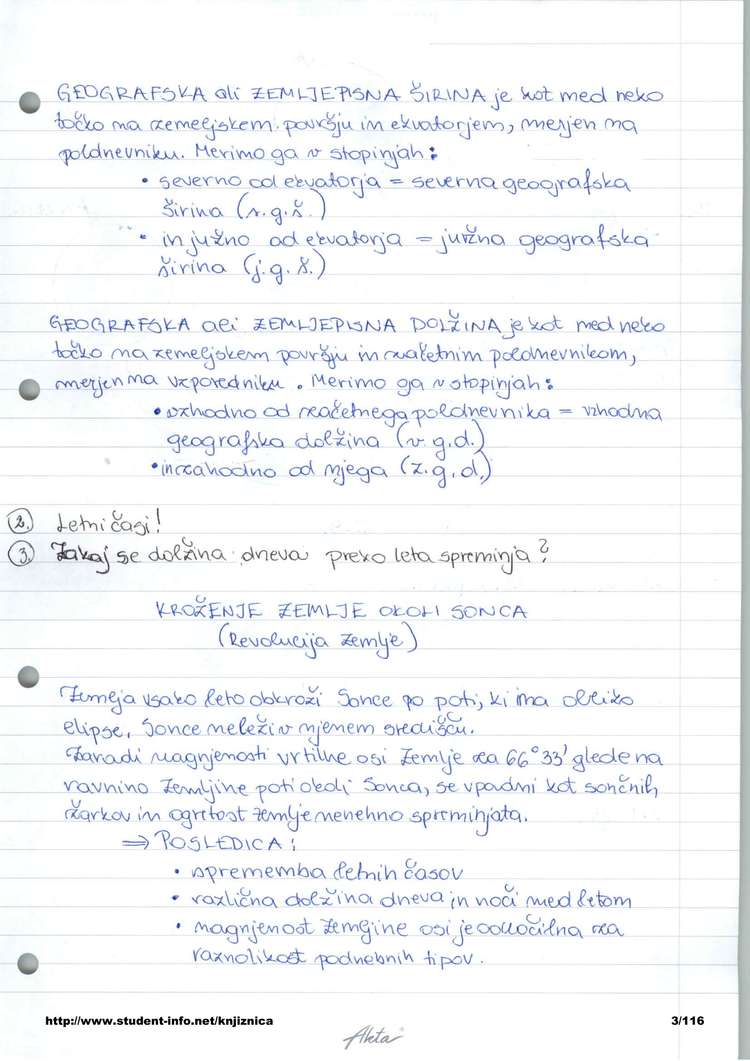 GEOGRAFSKA ali ZEMLJEPISNA ŠIRINA je kot med neko
točko na zemeljskem površju in ekvatorjem, merjen na
poldnevniku. Merimo ga v stopinjah:
• severno od ekvatorja = severna geografska
širina (s.g.š.)
• in južno od ekvatorja = južna geografska
širina (j.g.š.)
GEOGRAFSKA ali ZEMLJEPISNA DOLŽINA je kot med neko
točko na zemeljskem površju in začetnim poldnevnikom,
merjen na vzporedniku. Merimo ga v stopinjah:
• vzhodno od začetnega poldnevnika = vzhodna
geografska dolžina (v.g.d.)
• in zahodno od njega (z.g.d.)
2. Letni časi!
3. Zakaj se dolžina dneva preko leta spreminja?
KROŽENJE ZEMLJE OKOLI SONCA
(Revolucija Zemlje)
Zemlja vsako leto obkroži Sonce po poti, ki ima obliko
elipse. Sonce ne leži v njenem središču.
Zaradi nagnjenosti vrtilne osi Zemlje za 66°33' glede na
ravnino Zemljine poti okoli Sonca, se vpadni kot sončnih
žarkov in ogretost zemlje nenehno spreminjata.
⇒ POSLEDICA:
• sprememba letnih časov
• različna dolžina dneva in noči med letom
• nagnjenost Zemljine osi je odločilna za
raznolikost podnebnih tipov.
http://www.student-info.net/knjiznica 3/116
Akta